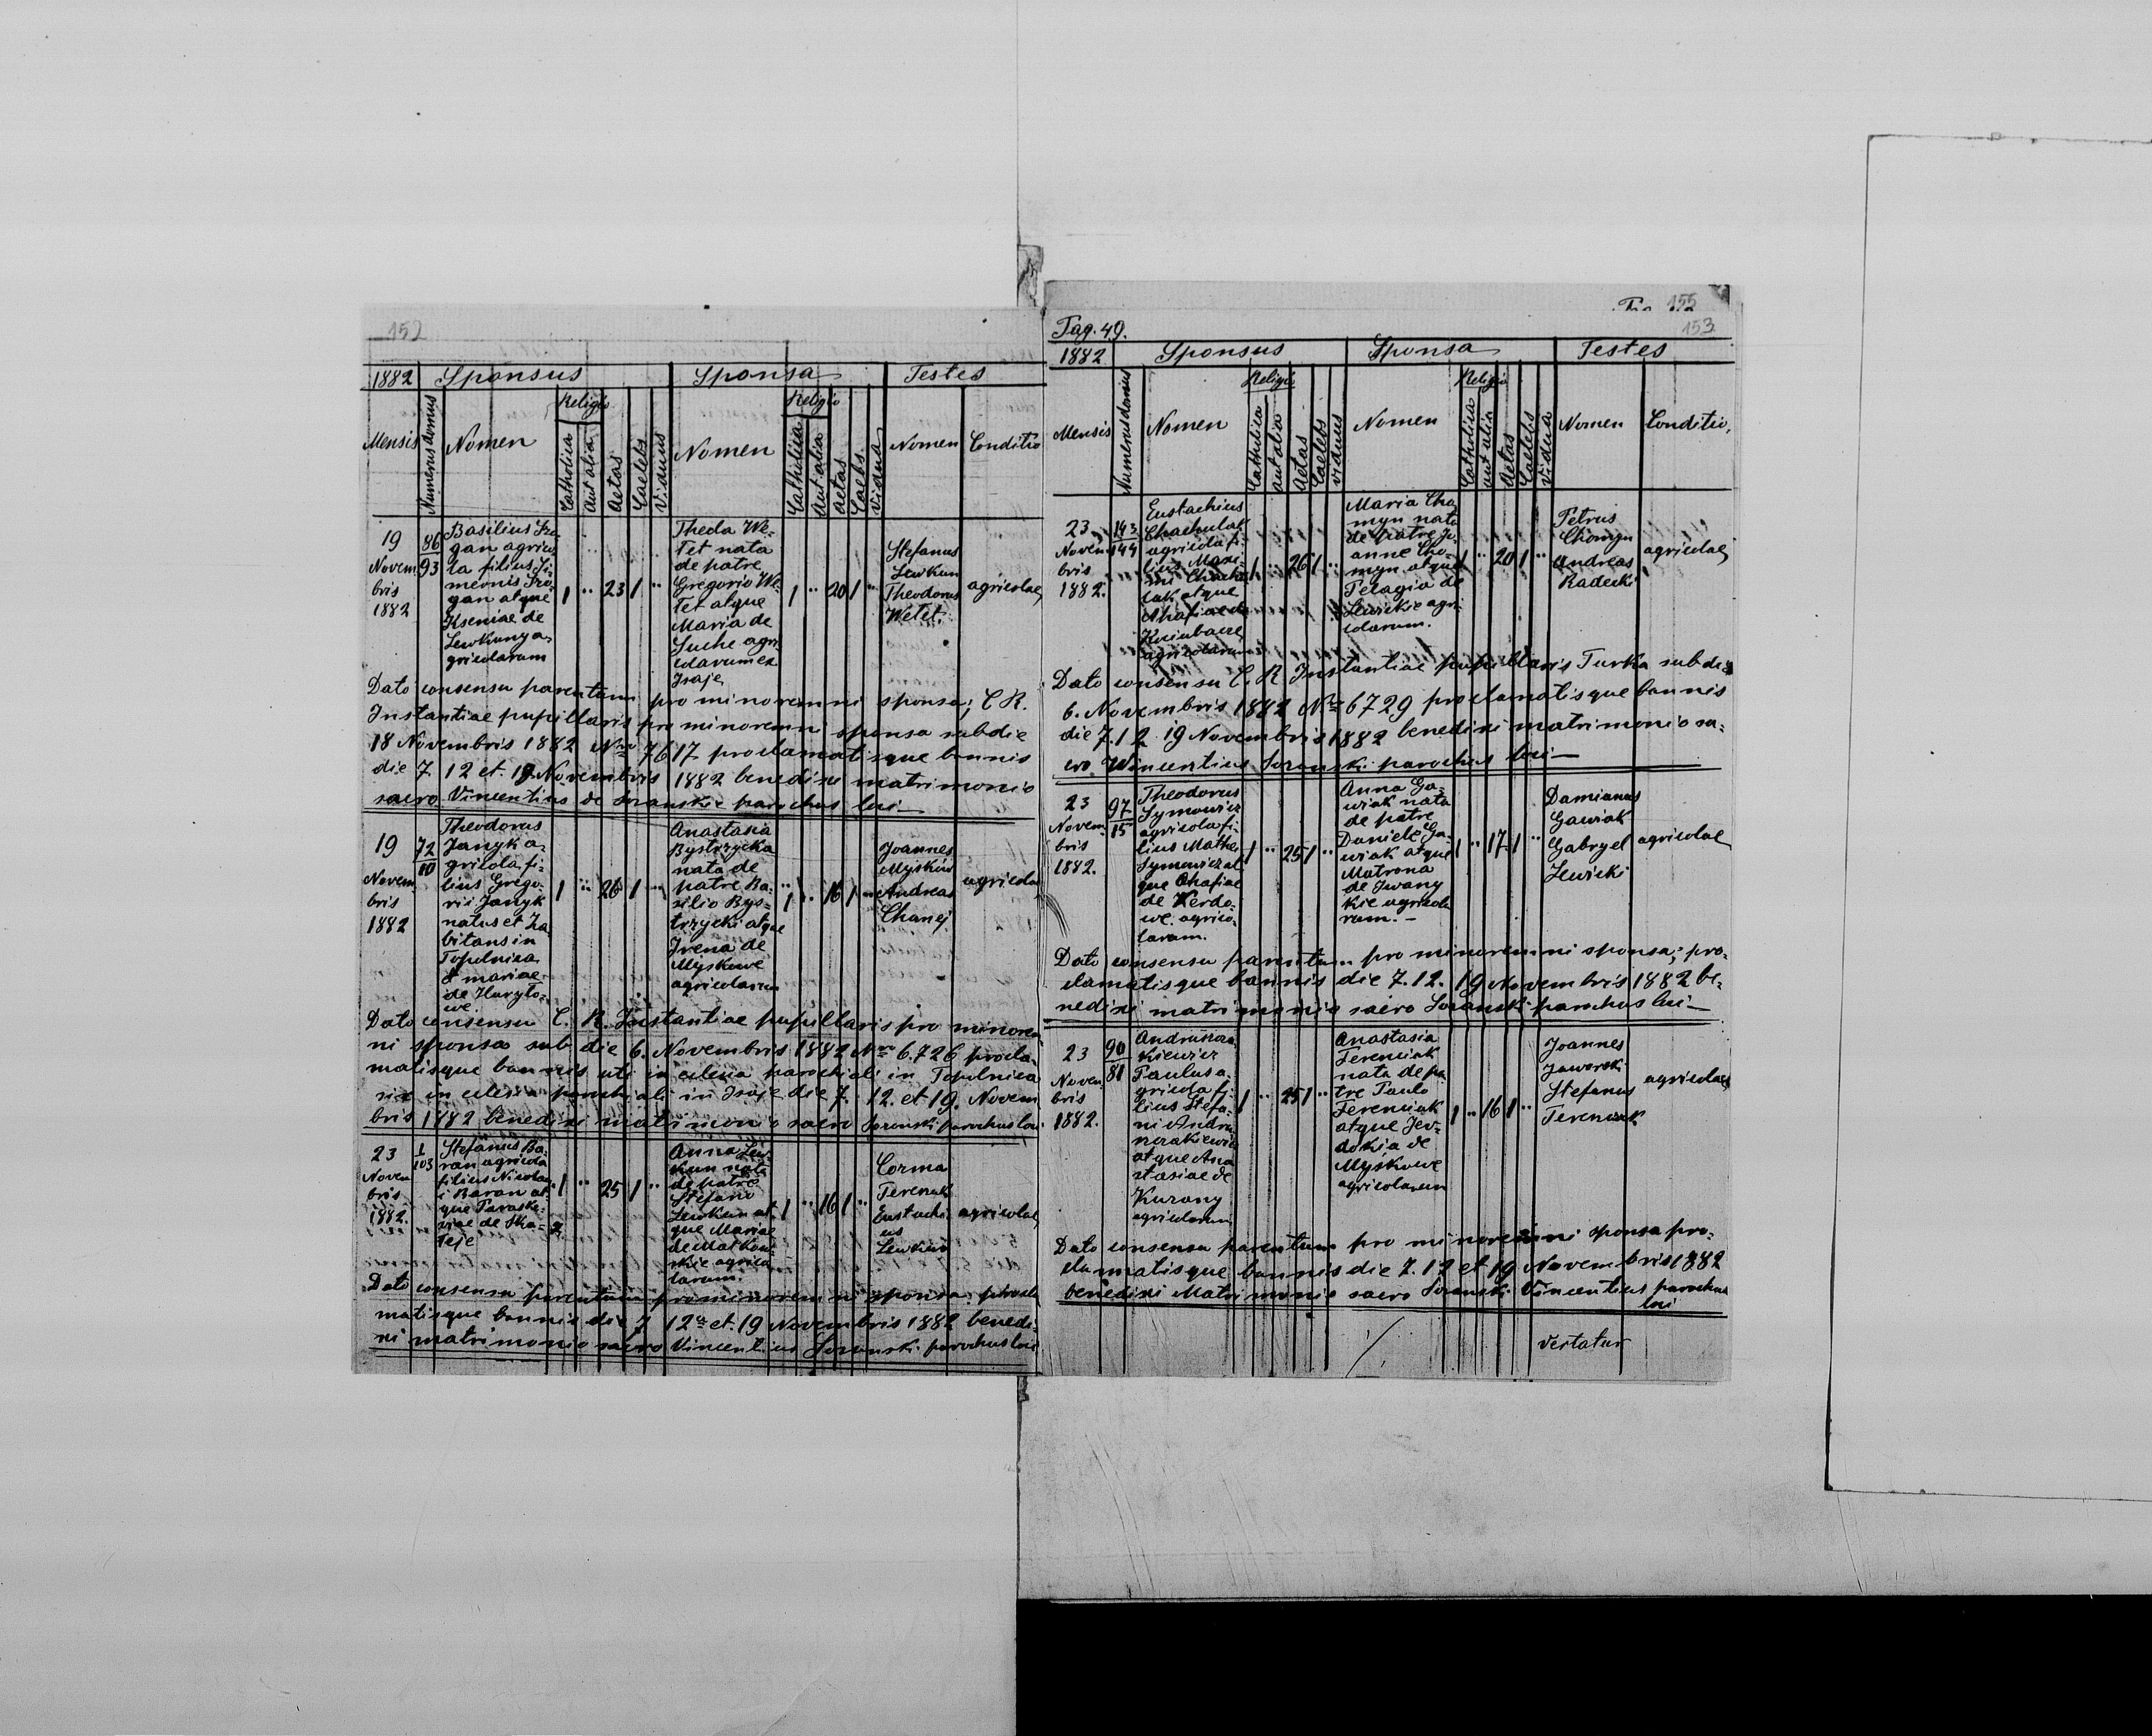 152
1882 Sponsus Sponsa Testes
Mensis Numerus domus Nomen Religio Catholica Aut alia Aetas Caelebs Viduus Nomen Religio Catholica Aut alia Aetas Caelebs Vidua Nomen Conditio
19
Novem
bris
1882
86
93
Basilius
gan agrico
la filius Ti-
meonis
gan atque
Kseniae de
Lewkuny a-
gricolarum
1 " 23 1 "
Thecla We-
tet nata
de patre
Gregorio We-
tet atque
Maria de
Suche agri-
colarum ex
Isaje
1 " 20 1 "
Stefanus
Lewkun
Theodorus
Wetet.
agricolae
Dato consensu parentum pro minorenni sponsa; C. R.
Instantiae pupillaris pro minorenni sponsa subdie
18 Novembris 1882 Nro 7617 proclamatisque bannis
die 7. 12 et. 19. Novembris 1882 benedixi matrimonio
sacro Vincentius de parochus loci
19
Novem
bris
1882
72
10
Theodorus
Janyk a-
gricola fi-
lius Grego-
rii Janyk
natus et ha
bitans in
Topolnica
& mariae
de Hurylo-
we.
1 " 26 1 "
Anastasia
Bystrycka
nata de
patre Ba-
silio Bys-
trzycki atque
Irena de
Myskowe
agricolarum
1 " 16 1 "
Joannes
Myskiw
Andreas
Chanej
agricolae
Dato consensu C. R. Instantiae pupillaris pro minoren
ni sponsa sub die 6. Novembris 1882 Nro 6.726 procla-
matisque bannis uti in eclesia parochiali in Topolnica
sic in eclesia parochiali in Isaje die 7. 12. et 19. Novem
bris 1882 benedixi matrimonio sacro parochus loci
23
Novem
bris
1882.
1
103
Stefanus Ba-
ran agricola
filius Nicola-
i Baran at-
que Paraske-
viae de
1 " 25 1 "
Anna Lew-
kun nata
de patre
Stefano
Lewkun at
que Mariae
de Matkow-
skie agrico
larum.
1 " 16 1 "
Corma
Eustachi-
us
Lewkun
agricolae
Dato consensu parentum pro minorenni sponsa, procla
matisque bannis die 7 12 et. 19 Novembris 1882 benedi-
xi matrimonio sacro Vincentius parochus loci
155
Pag. 49. 153
1882 Sponsus Sponsa Testes
Mensis Numerus domus Nomen Religio Catholica aut alia Aetas Caelebs viduus Nomen Religio Catholica aut alia Aetas Caelebs vidua Nomen Conditio,
23
Novem
bris
1882.
143
144
Eustachius
Chachulak
agricola fi-
lius Maxi-
mi Chachu
lak atque
Ahafiae de
agricolarum
1 " 26 1 "
Maria Cho
myn nata
de patre Jo-
anne Cho-
myn atque
Pelagia de
Lewickie agri-
colarum.
1 " 20 1 "
Petrus
Chomyn
Andreas
Radecki
agricolae
Dato consensu C. R Instantiae pupillaris Turka subdie
6. Novembris 1882 Nro 6729 proclamatisque bannis
die 7. 12 19 Novembris 1882 benedixi matrimonio sa-
cro. Wincentius parochus loci —
23
Novem
bris
1882.
97
15
Theodorus
Symowicz
agricola fi-
lius Mathei
Symowicz at
que Ahafiae
de Kerdo-
we. agrico-
larum.
1 " 25 1 "
Anna Ga-
wiak nata
de patre
Daniele Ga-
wiak atque
Matrona
de Iwany
kie agricola
rum. —
1 " 17 1 "
Damianus
Gawiak
Gabryel
Lewicki
agricolae
Dato consensu parentum pro minorenni sponsa; pro-
clamatisque bannis die 7. 12. 19 Novembris 1882 be-
nedixi matrimonio sacro parochus loci —
23
Novem
bris
1882.
90
81
kiewicz
Paulus a
gricola fi-
lius Stefa-
ni
atque Ana
stasiae de
Kurany
agricolarum
1 " 25 1 "
Anastasia
Fereniak
nata de pa-
tre Paulo
Fereniak
atque Jev-
dokia de
Myskowe
agricolarum
1 " 16 1 "
Joannes
Jaworski
Stefanus
Fereniak
agricolae
Dato consensu parentum pro minorenni sponsa pro-
clamatisque bannis die 7. 12 et 19 Novembris 1882
benedixi Matrimonio sacro Vincentius parochus
loci
vertatur